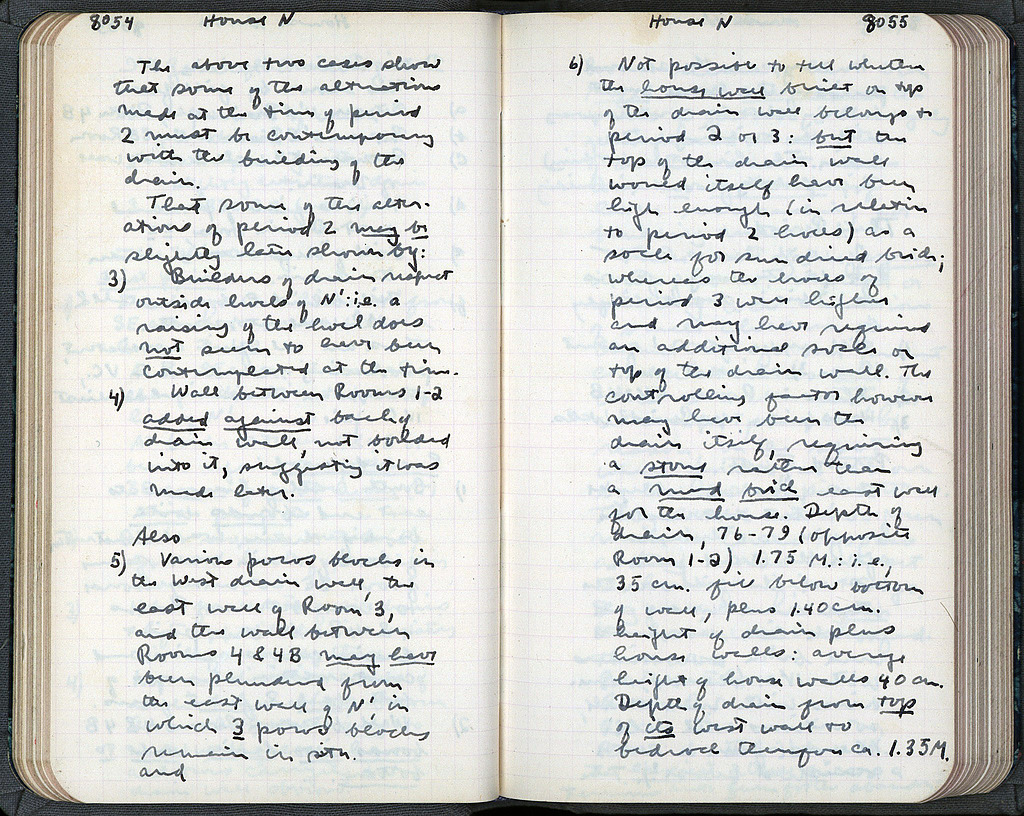 8054 House N
The above two cases show
that some of the alterations
made at the time of period
2 must be contemporary
with the building of the
drain.
That some of the alter-
ations of period 2 may be
slightly later shown by:
3) Builders of drain respect
outside levels of N': i.e. a
raising of the level does
not seem to have been
contemplated at the time.
4) Wall between Rooms 1-2
added against back of
drain wall, not bonded
into it, suggesting it was
made later.
Also
5) Various poros blocks in
the west drain wall, the
east wall of Room 3,
and the wall between
Rooms 4 & 4B may have
been plundered from
the east wall of N' in
which 3 poros blocks
remain in situ.
and
House N 8055
6) Not possible to tell whether
the house wall built on top
of the drain wall belongs to
period 2 or 3: but the
top of the drain wall
would itself have been
high enough (in relation
to period 2 levels) as a
socle for sun dried brick;
whereas the levels of
period 3 were higher
and may have required
an additional socle on
top of the drain wall. The
controlling factor however
may have been the
drain itself, requiring
a stone rather than
a mud brick east wall
for the house. Depth of
drain, 76-79 (opposite
Room 1-2) 1.75 M.: i.e.,
35 cm. fill below bottom
of wall, plus 1.40 cm.
height of drain plus
house walls: average
height of house walls 40 cm.
Depth of drain from top
of its west wall to
bedrock therefore ca. 1.35 M.